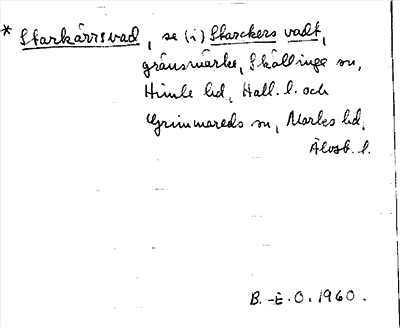 * Starkärrsvad, se (i) Starckers vadt,
gränsmärke, Skällinge sn,
Himle hd, Hall. l. och
Grimmareds sn, Marks hd,
Älvsb. l.
B.-E.O. 1960.